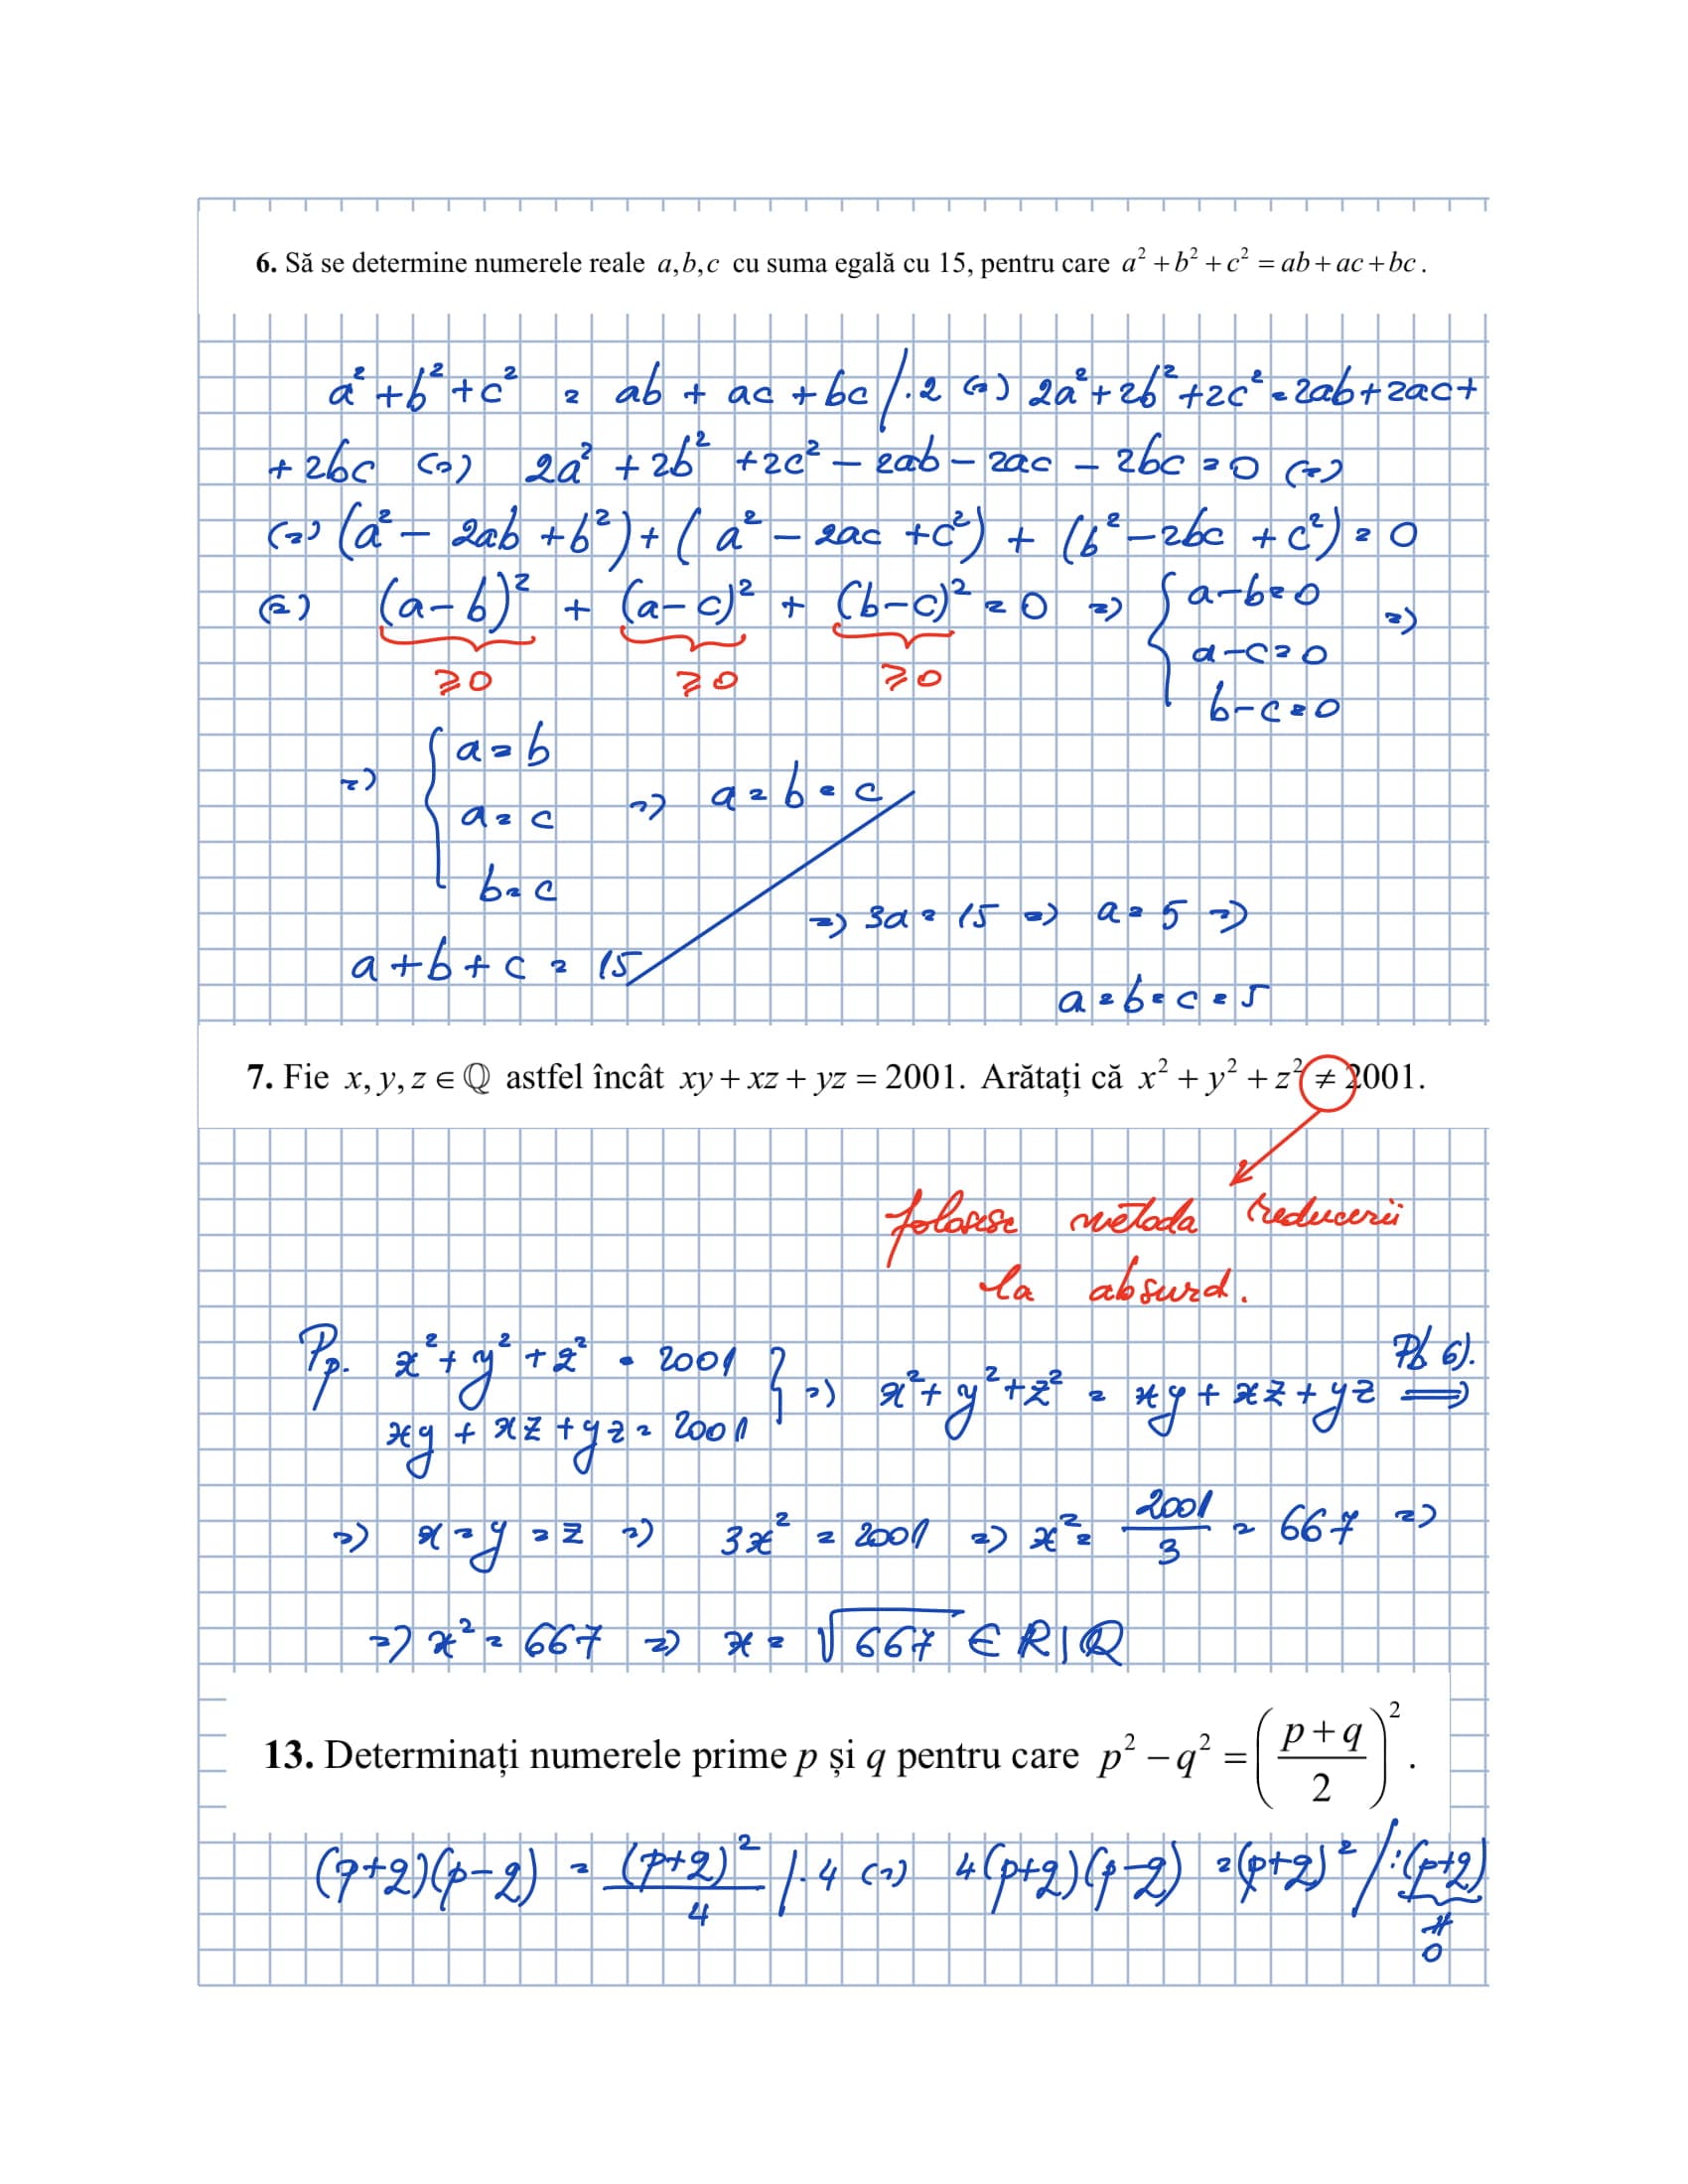 6. Să se determine numerele reale a,b,c cu suma egală cu 15, pentru care a² + b² + c² = ab + ac + bc.
a² + b² + c² = ab + ac + bc /·2 (=) 2a² + 2b² + 2c² = 2ab + 2ac +
+ 2bc (=) 2a² + 2b² + 2c² − 2ab − 2ac − 2bc = 0 (=)
(=) (a² − 2ab + b²) + (a² − 2ac + c²) + (b² − 2bc + c²) = 0
(=) (a−b)² + (a−c)² + (b−c)² = 0 => { a−b=0 =>
a−c=0
b−c=0
≥0 ≥0 ≥0
=> { a=b
a=c => a=b=c
b=c
=> 3a = 15 => a = 5 =>
a+b+c = 15
a=b=c=5
7. Fie x, y, z ∈ ℚ astfel încât xy + xz + yz = 2001. Arătați că x² + y² + z² ≠ 2001.
folosesc metoda reducerii
la absurd.
Pp. x² + y² + z² = 2001 } => x² + y² + z² = xy + xz + yz Pb 6). =>
xy + xz + yz = 2001
=> x = y = z => 3x² = 2001 => x² = 2001/3 = 667 =>
=> x² = 667 => x = √667 ∈ R|Q
13. Determinați numerele prime p și q pentru care p² − q² = ((p+q)/2)².
(p+q)(p−q) = (p+q)²/4 /·4 (=) 4(p+q)(p−q) = (p+q)² /:(p+q)
≠
0